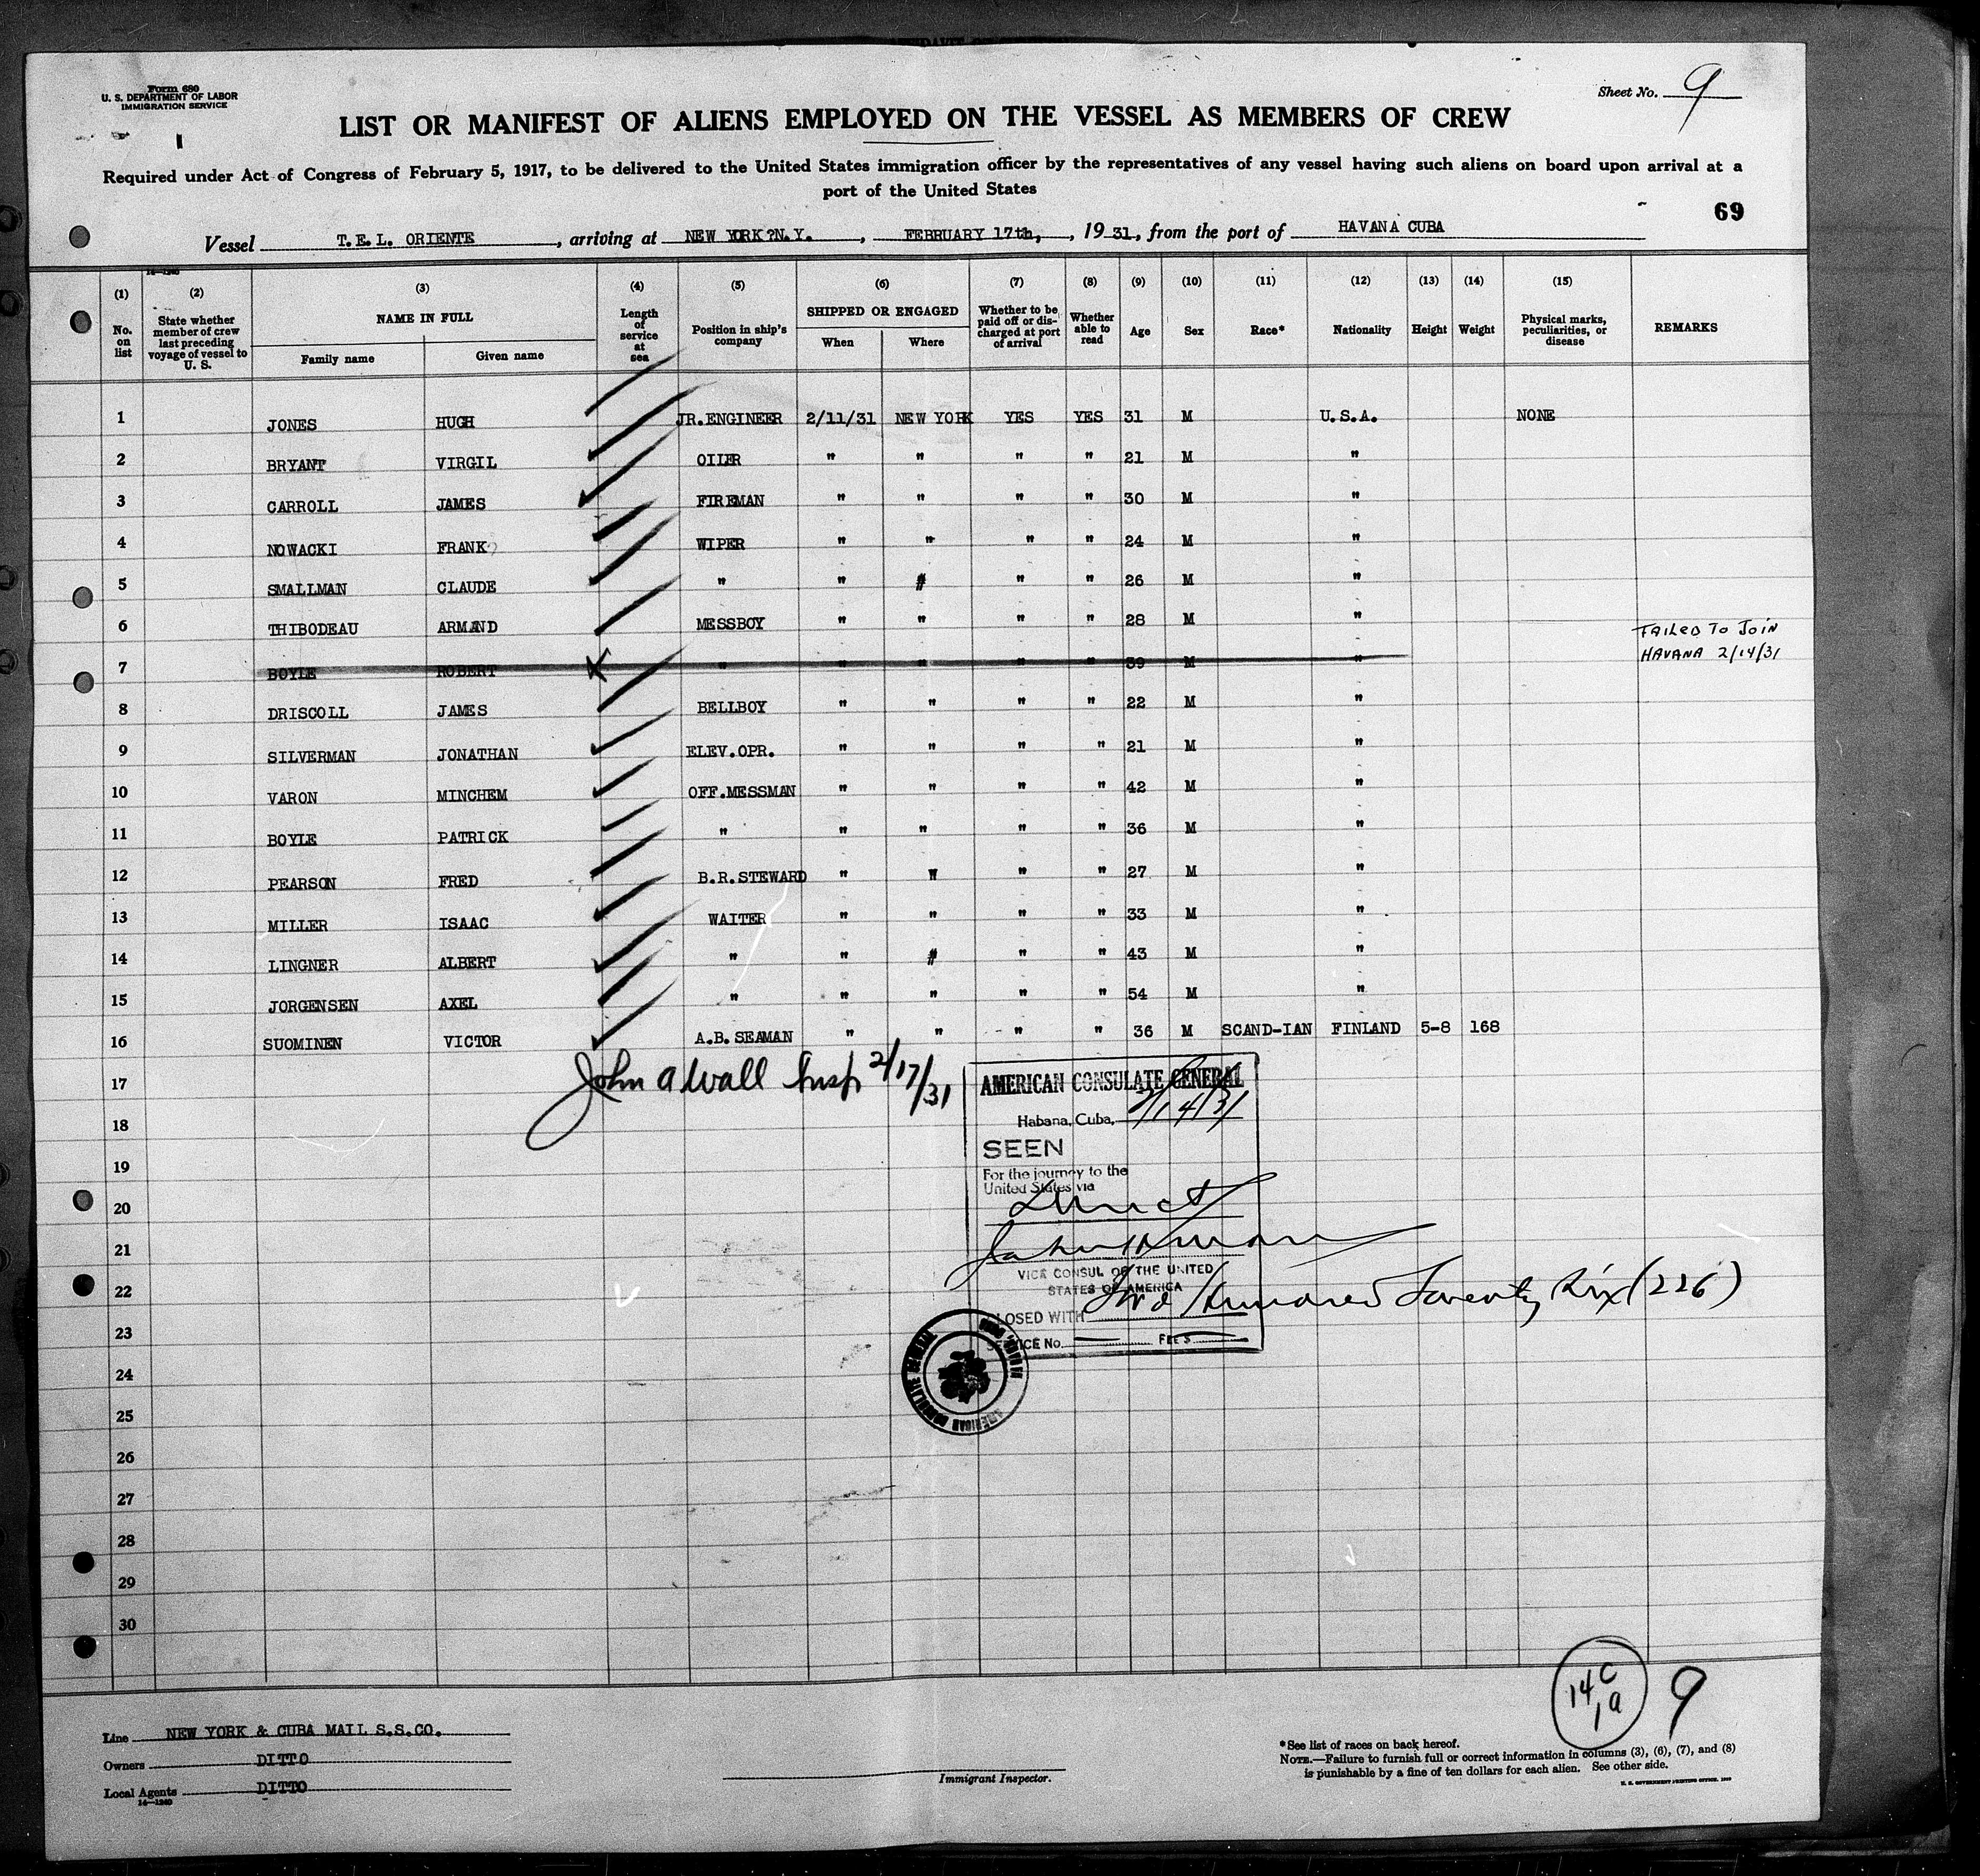 Form 680
U. S. DEPARTMENT OF LABOR
IMMIGRATION SERVICE
Sheet No. 9
LIST OR MANIFEST OF ALIENS EMPLOYED ON THE VESSEL AS MEMBERS OF CREW
Required under Act of Congress of February 5, 1917, to be delivered to the United States immigration officer by the representatives of any vessel having such aliens on board upon arrival at a
port of the United States
69
Vessel T.E.L. ORIENTE, arriving at NEW YORK?N.Y., FEBRUARY 17th, , 1931, from the port of HAVANA CUBA
14—1240
(1) (2) (3) (4) (5) (6) (7) (8) (9) (10) (11) (12) (13) (14) (15)
No. on list State whether member of crew last preceding voyage of vessel to U. S. NAME IN FULL Family name Given name Length of service at sea Position in ship's company SHIPPED OR ENGAGED When Where Whether to be paid off or discharged at port of arrival Whether able to read Age Sex Race* Nationality Height Weight Physical marks, peculiarities, or disease REMARKS
1 JONES HUGH JR.ENGINEER 2/11/31 NEW YORK YES YES 31 M U.S.A. NONE
2 BRYANT VIRGIL OILER " " " " 21 M "
3 CARROLL JAMES FIREMAN " " " " 30 M "
4 NOWACKI FRANK WIPER " " " " 24 M "
5 SMALLMAN CLAUDE " " # " " 26 M "
6 THIBODEAU ARMAND MESSBOY " " " " 28 M "
7 BOYLE ROBERT " " " " " 39 M " FAILED TO JOIN HAVANA 2/14/31
8 DRISCOLL JAMES BELLBOY " " " " 22 M "
9 SILVERMAN JONATHAN ELEV.OPR. " " " " 21 M "
10 VARON MINCHEM OFF.MESSMAN " " " " 42 M "
11 BOYLE PATRICK " " " " " 36 M "
12 PEARSON FRED B.R.STEWARD " " " " 27 M "
13 MILLER ISAAC WAITER " " " " 33 M "
14 LINGNER ALBERT " " # " " 43 M "
15 JORGENSEN AXEL " " " " " 54 M "
16 SUOMINEN VICTOR A.B.SEAMAN " " " " 36 M SCAND-IAN FINLAND 5-8 168
17
John A Wall Insp 2/17/31
18
19
20
21
22
23
24
25
26
27
28
29
30
AMERICAN CONSULATE GENERAL
Habana, Cuba, 2/14/31
SEEN
For the journey to the
United States via
Direct
VICE CONSUL OF THE UNITED
STATES OF AMERICA
CLOSED WITH Two Hundred Twenty Six (226)
SERVICE No. FEES
AMERICAN CONSULATE GENERAL
14 C
1 a
9
Line NEW YORK & CUBA MAIL S.S.CO.
Owners DITTO
Local Agents DITTO
14—1240
Immigrant Inspector.
*See list of races on back hereof.
NOTE.—Failure to furnish full or correct information in columns (3), (6), (7), and (8)
is punishable by a fine of ten dollars for each alien. See other side.
U. S. GOVERNMENT PRINTING OFFICE